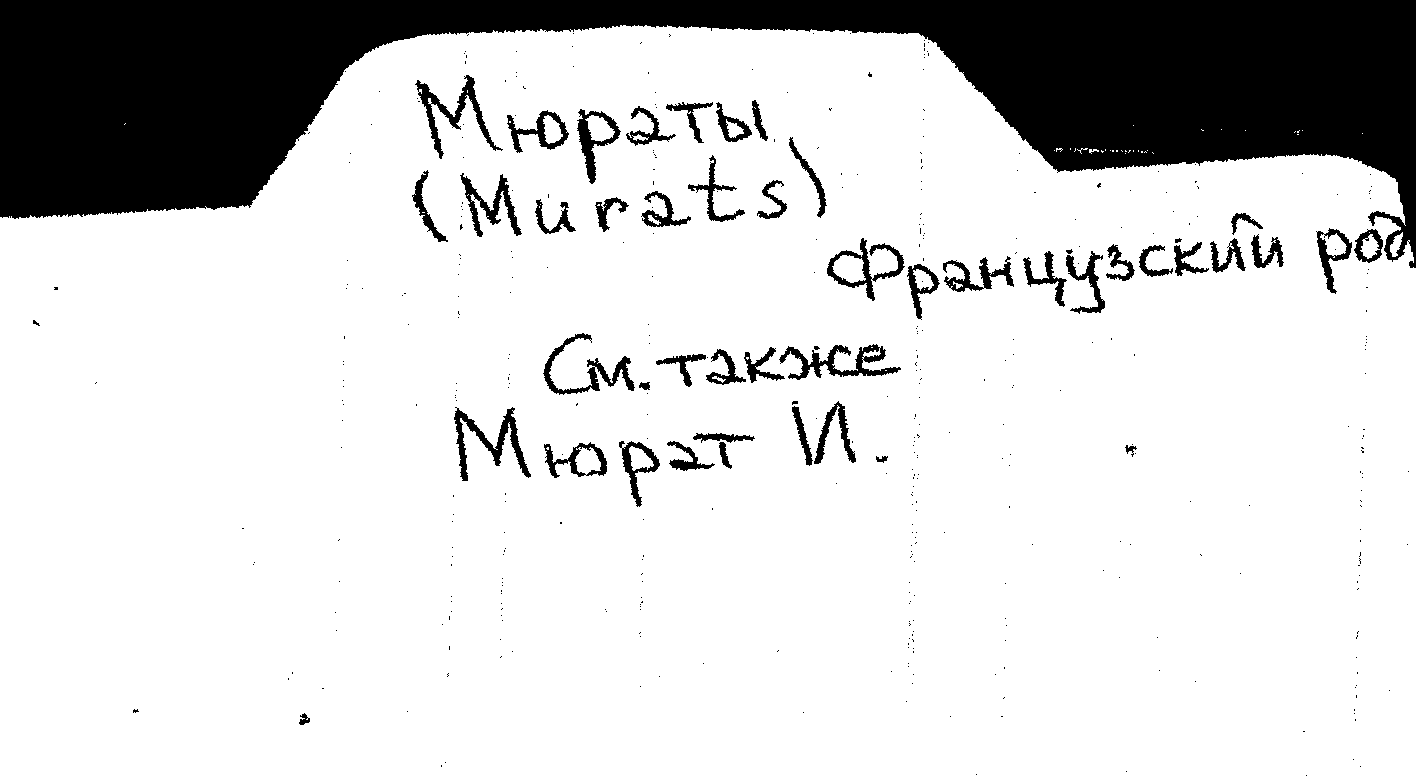 Мюраты
(Murats)
Французский род.
См. также
Мюрат И.